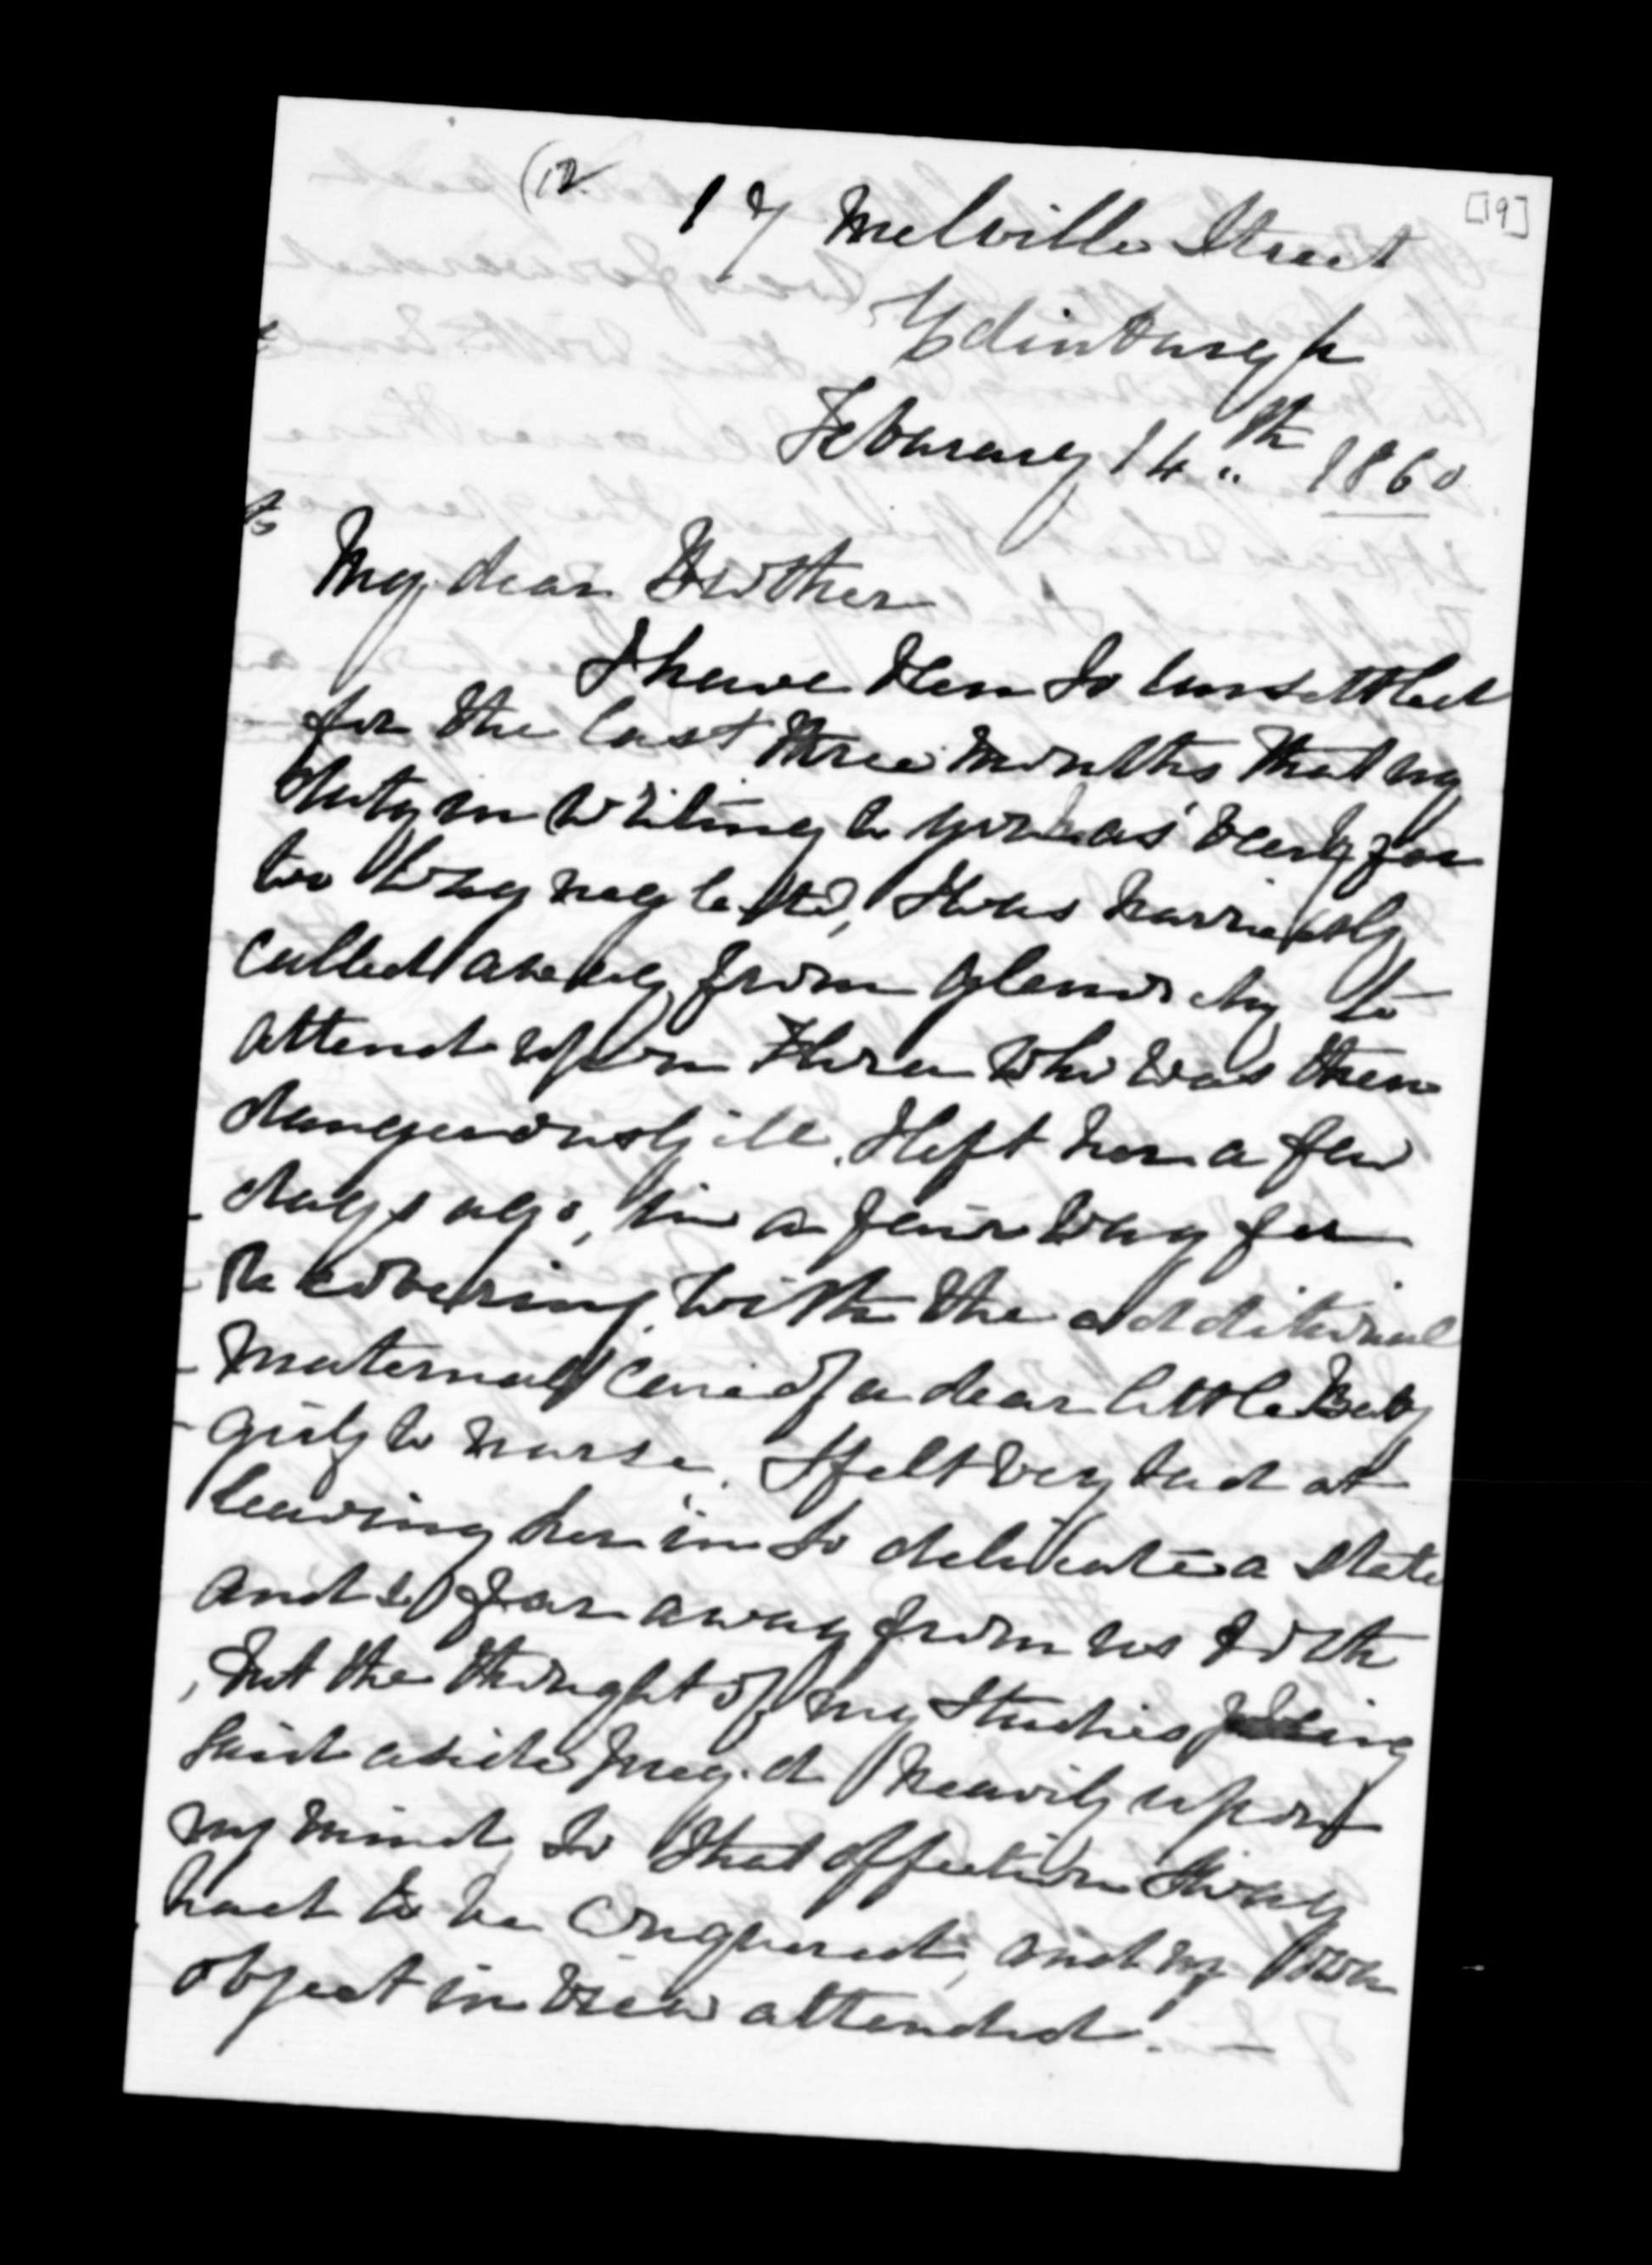 (12.
[19]
17 Melville Street
Edinburgh
February 14th 1860
My dear Brother
I have been so unsettled
for the last three months that my
duty in writing to you has been far
too long neglected, I was hurriedly
called away from Glenorchy to
attend upon Flora who was then
dangerously ill. I left her a few
days ago, in a fair way for
recovering, with the additional
maternal care of a dear little Baby
girl to nurse. I felt very bad at
leaving her in so delicate a state
and so far away from us both
, but the thought of my studies being
laid aside preyed heavily upon
my mind, so that affection's sway
had to be conquered, and my own
object in view attended. —